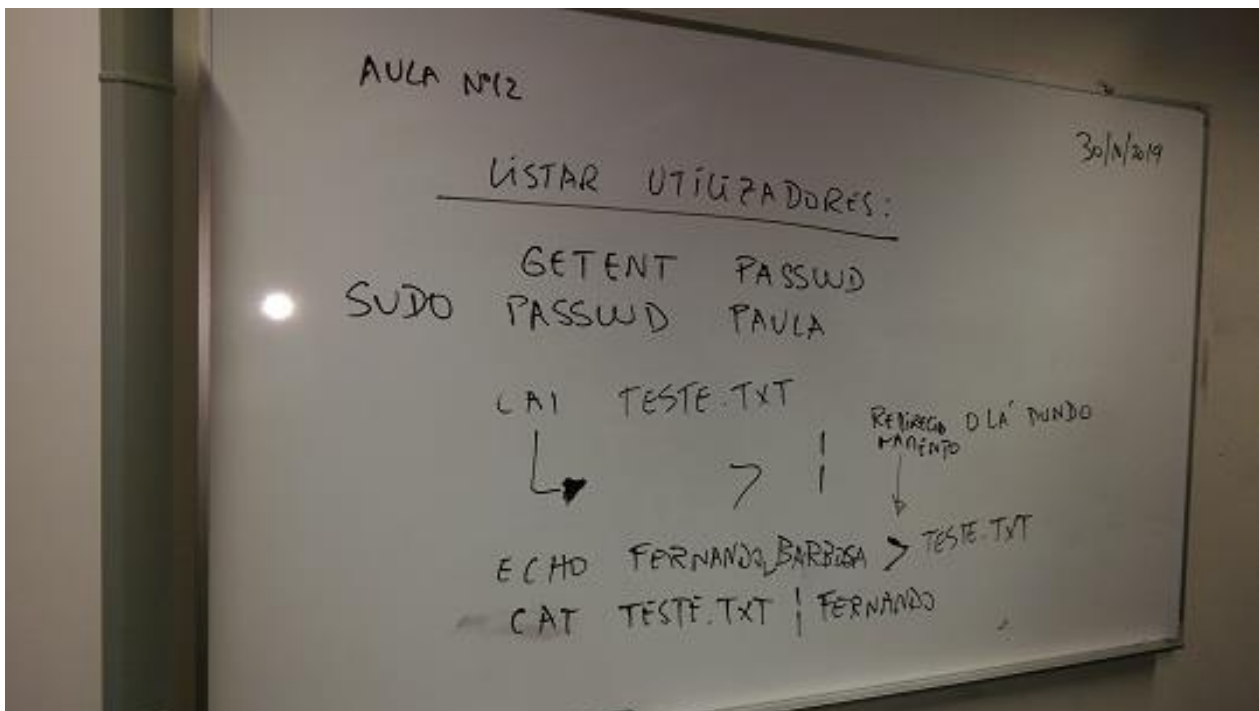 AULA Nº12
30/10/2019
LISTAR UTILIZADORES:
GETENT PASSWD
SUDO PASSWD PAULA
CAT TESTE.TXT
> ¦
REDIRECIO OLÁ MUNDO
NAMENTO
ECHO FERNANDO_BARBOSA > TESTE.TXT
CAT TESTE.TXT ¦ FERNANDO